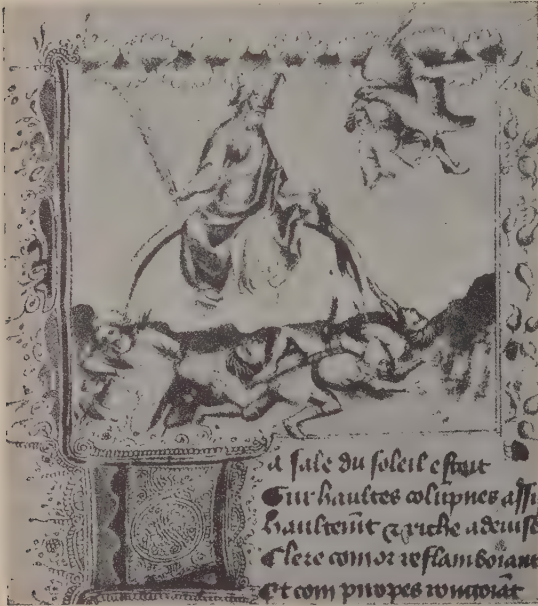 a sale du soleil estoit
Sur haultes colupnes assi
haultem̄t & riche a deuise
Clere com or reflamboiant
Et com piropes rougoiāt